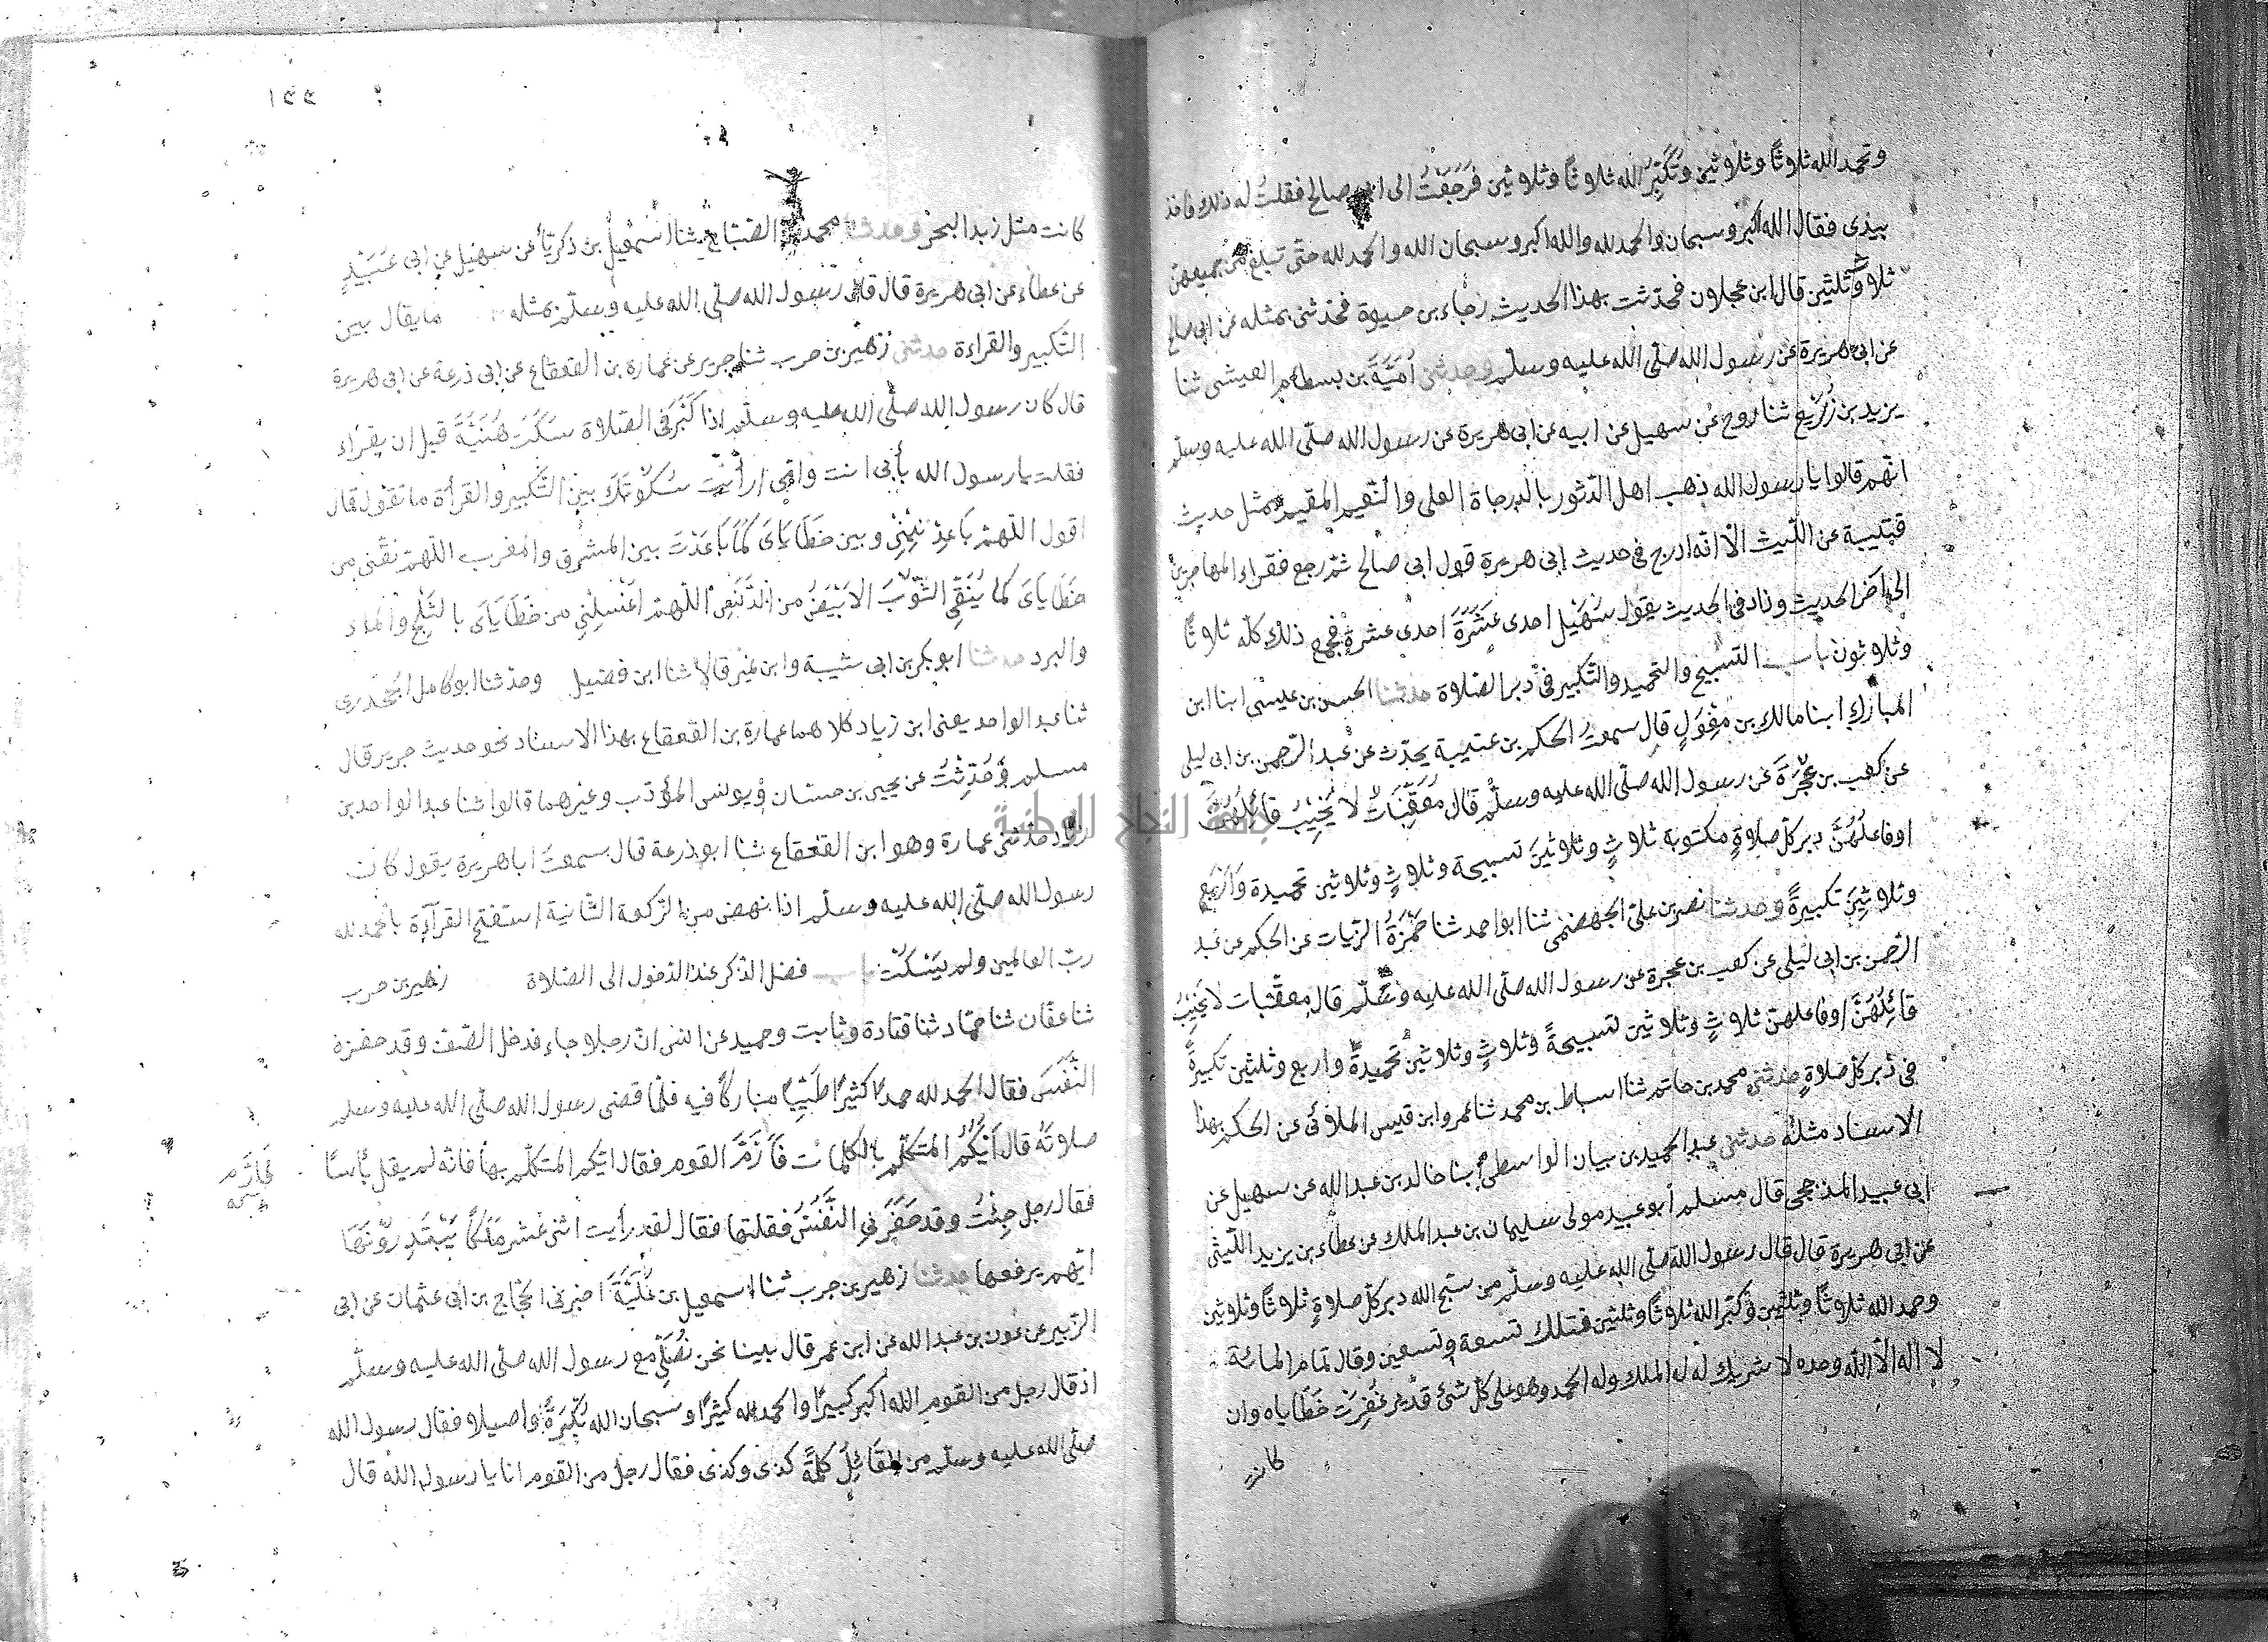 وتحمد الله ثلاوثًا وثلاوثين وتُكَبِّرُ الله ثلاوثًا وثلاوثين فَرَجَعْتُ الى ابى صالح فقلتُ له ذلك فاخذ
بيذى فقال الله اكبر وسبحان والحمد لله والله اكبر وسبحان الله والحمد لله حتى تبلغ من جميعهن
ثلاو وثلثين قال ابن عجلاون فحدّثت بهذا الحديث رجاء بن حيوة فحدّثنى بمثله عن ابى صالح
عن ابى هريرة عن رسول الله صلّى الله عليه وسلّم وحدثنى اُمَيَّةَ بن بسطام العيشى ثنا
يزيد بن زُرَيْع ثنا روح عن سهيل عن ابيه عن ابى هريرة عن رسول الله صلّى الله عليه وسلّم
انّهم قالوا يا رسول الله ذهب اهل الدّثور بالدرجاة العلى والنّعيم المقيم بمثل حديث
قتيبة عن اللّيث الّا انّه ادرج فى حديث ابى هريرة قول ابى صالح ثمّ رجع فقراء المهاجرين
الى اخر الحديث وزاد فى الحديث يقول سُهَيْل احدى عَشَرَةَ احدى عشرة فجمع ذلك كلّه ثلاوثًا
وثلاوثون باب التسبيح والتحميد والتّكبير فى دبر الصّلاوة حدثنا الحسن بن عيسى ابنا ابن
المبارك ابنا مالك بن مِغْوَلٍ قال سمعتُ الحكم بن عتيبة يحدّث عن عبد الرّحمن بن ابى ليلى
عن كعب بن عُجْرَةَ عن رسول الله صلّى الله عليه وسلّم قال مُعَقِّبَاتٌ لا يُخَيِّبُ قائِلُهُنَّ
اوفاعلُهُنَّ دبر كلّ صلاوةٍ مكتوبة ثلاوثٍ وثلاوثينَ تسبيحة وثلاوثٍ وثلاوثين تحميدة وَاَرْبَعٍ
وثلاوثينَ تكبيرةً وحدثنا نصر بن علىّ الجهضمى ثنا ابو احمد ثنا حَمْزَةُ الزيات عن الحكم عن عبد
الرّحمن بن ابى ليلى عن كعب بن عجرة عن رسول الله صلّى الله عليه وسلّم قال معقّبات لا يَخِيْبُ
قائِلُهُنَّ اوفاعلهنّ ثلاوثٍ وثلاوثين تسبيحةً وثلاوثٍ وثلاوثين تحميدةً واربع وثلثين تكبيرةً
فى دُبر كلّ صلاوةٍ حدثنى محمد بن حاتم ثنا اسباط بن محمد ثنا عمرو ابن قيس الملائى عن الحكم بهذا
الاسناد مثله حدثنى عبد الحميد بن بيان الواسطى ابنا خالد بن عبد الله عن سهيل عن
ابى عبيد المذحجى قال مسلم أبو عبيد مولى سليمان بن عبد الملك عن عطاء بن يزيد اللّيثى
عن ابى هريرة قال قال رسول الله صلى الله عليه وسلّم من سبّح الله دبر كلّ صلاوةٍ ثلاوثًا وثلاوثين
وحمد الله ثلاوثًا وثلثين وكبّر الله ثلاوثًا وثلثين فتلك تسعة وتسعين وقال تمام المائة
لا اله الّا اللّه وحده لا شريك له له الملك وله الحمد وهو على كلّ شئ قدير غُفِرَتْ خَطَاياه وان
كانت
١٤٤
كانت مثل زبد البحر وحدثنا محمد الصّباح ثنا اسْمٰعيل بن ذكريّا عن سهيل عن ابى عُبَيْدٍ
عن عطاء عن ابى هريرة قال قال رسول الله صلّى الله عليه وسلّم بمثله ما يقال بين
التّكبير والقراءة حدثنى زهير بن حرب ثنا جرير عن عمارة بن القعقاع عن ابى ذرعة عن ابى هريرة
قال كان رسول الله صلّى الله عليه وسلّم اذا كَبَّرَ فى الصّلاوة سَكَتَ هُنَيَّةً قبل ان يقراء
فقلت يا رسول الله بأبى انت وامّى ارأَيْتَ سُكُوْتَكَ بين التّكبير والقرأة ما تقول قال
اقول اللّهمّ بَاعِدْ بَيْنِىْ وبين خَطَايَاىَ كَمَا بَاعَدْتَ بين المشرق والمغرب اللّهمّ نقّنى من
خَطَايَاىَ كما يُنَقَّى الثّوْبَ الابْيَضُ من الدَّنَسِ اللّهمّ اغْسِلْنِى من خَطَايَاىَ بالثَّلْجِ والماء
والبرد حدثنا ابو بكر بن ابى شيبة وابن نمير قالا ثنا ابن فضيل وحدّثنا ابو كامل الجحدرى
ثنا عبد الواحد يعنى ابن زياد كلاهما عمارة بن القعقاع بهذا الاسناد نحو حديث جرير قال
مسلم وَحُدِّثْتُ عن يحيى بن حسّان ويونس المؤدّب وغيرهما قالوا ثنا عبد الواحد بن
زياد حدّثنى عمارة وهو ابن القعقاع ثنا ابو ذرعة قال سمعتُ ابا هريرة يقول كان
رسول الله صلّى الله عليه وسلّم اذا نهض من الرّكعة الثّانية استفتح القرآءة بالحمد لله
ربّ العالمين ولم يَسْكُتْ باب فضل الذّكر عند الدّخول الى الصّلاة زهير بن حرب
ثنا عفّان ثنا حمّاد ثنا قتادة وثابت وحميد عن انس انّ رجلا جاء فدخل الصّفّ وقد حفزه
النَّفَسُ فقال الحمد لله حمدًا كثيرًا طَيّبًا مباركًا فيه فلمّا قضى رسول الله صلّى الله عليه وسلم
صلاوتَهُ قال أَيُّكُمُ المتكلّم بالكلمات فَأَرَمَّ القوم فقال ايّكم المتكلّم بها فانّه لم يقل بأسًا
فَأَزَم
نسخه
فقال رجل جِئْتُ وقد حَفَزَنِى النَّفَسُ فقلتها فقال لقد رأيت اثنى عَشَرَ مَلَكًا يَبْتَدِرُوْنَهَا
ايّهم يرفعها حدثنا زهير بن حرب ثنا اسمعيل بن عُلَيَّةَ اخبرنى الحجّاج بن ابى عثمان عن ابى
الزبير عن عون بن عبد الله عن ابن عمر قال بينا نحن نُصَلِّى مع رسول الله صلّى الله عليه وسلّم
اذ قال رجل من القوم الله اكبر كبيرًا والحمد لله كثيرًا وسبحان الله بُكْرَةً واصيلا فقال رسول الله
صلّى الله عليه وسلّم من القَائِلُ كلمَةً كذى وكذى فقال رجل من القوم انا يا رسول الله قال
جامعة النجاح الوطنية